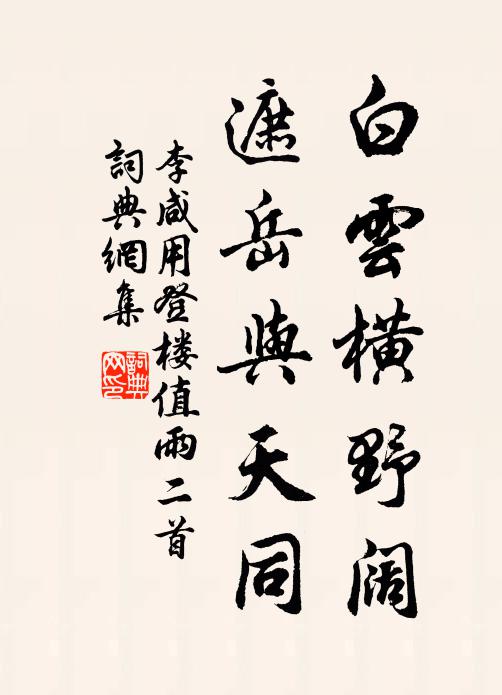 白雲橫野闊
遮岳與天同
李咸用登楼值雨二首
詞典網集
詞典
网印